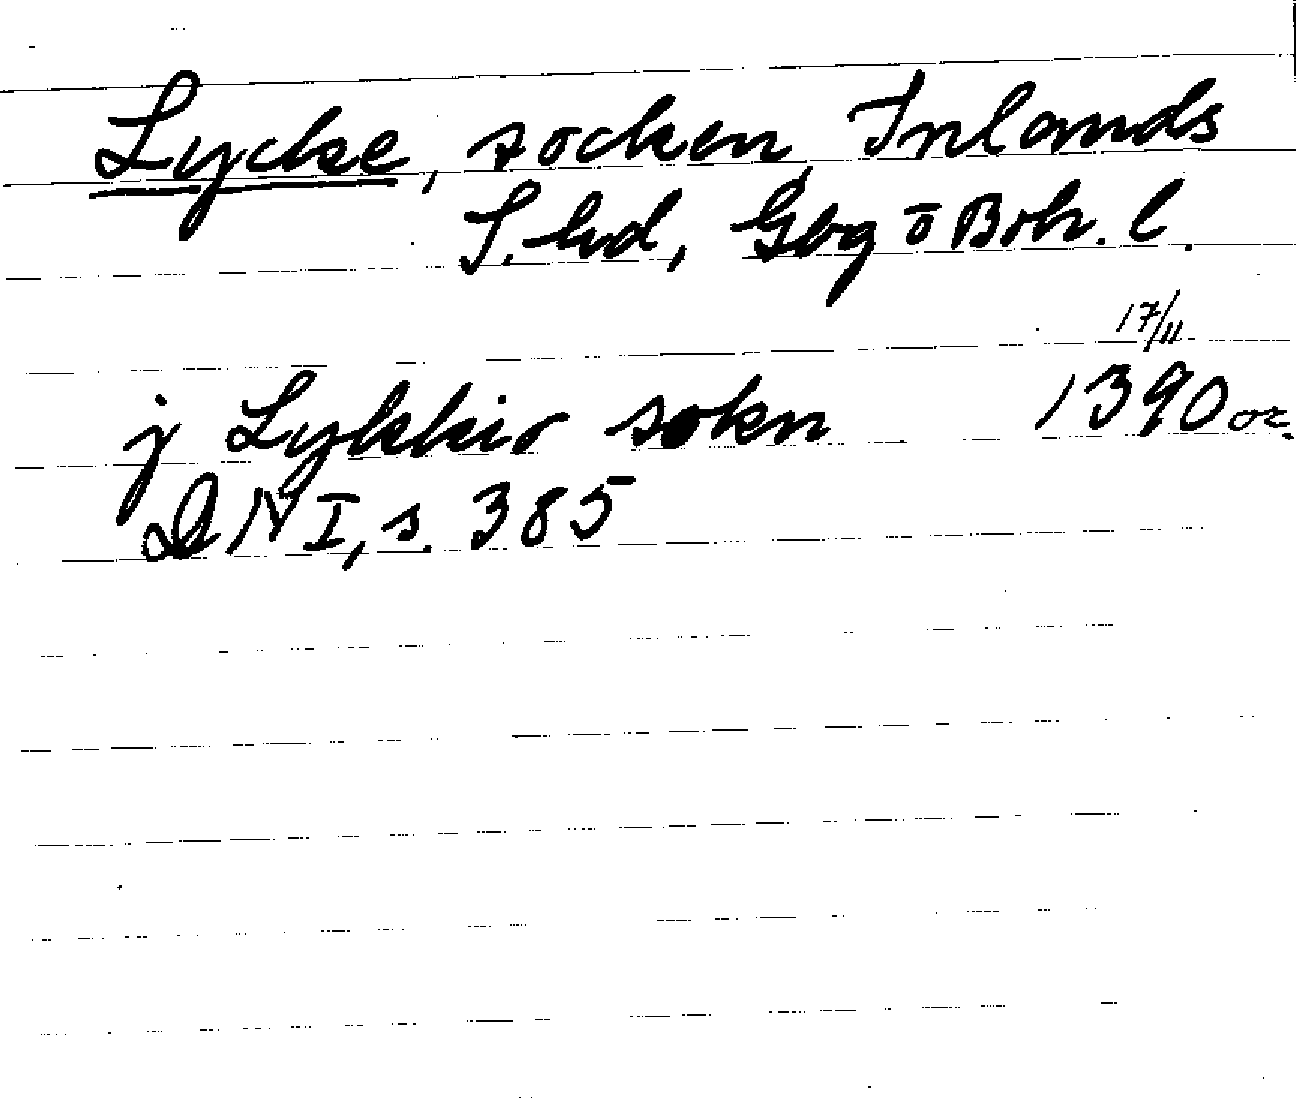 Lycke, socken, Inlands
S. hd, Gbg ō Boh. l.
17/11
j Lykkio sokn 1390 or.
DN I, s. 385